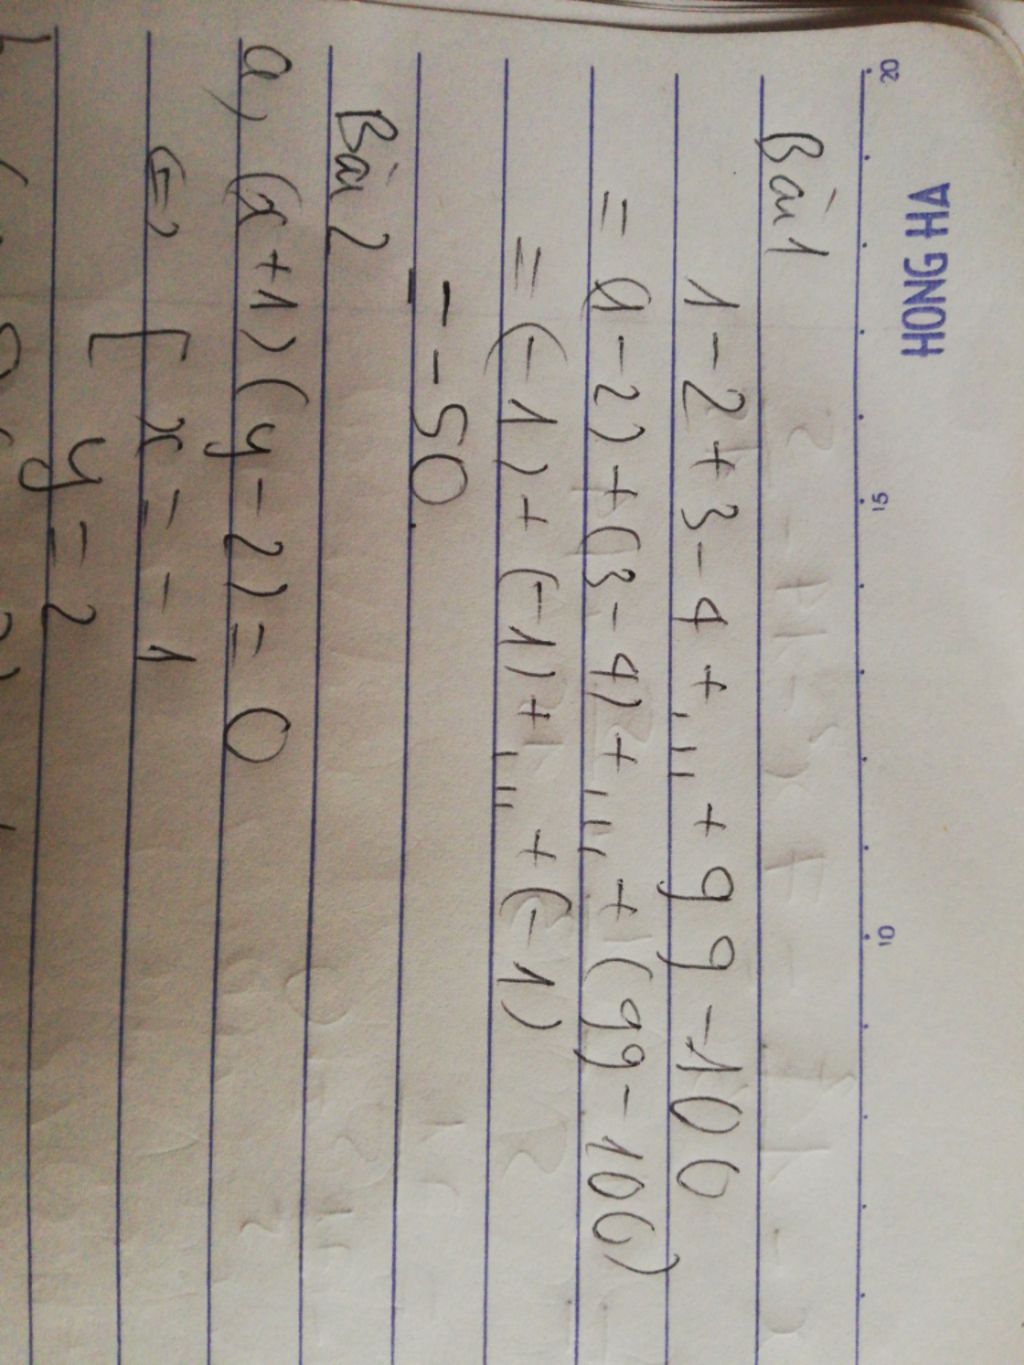 HONG HA
20 15 10
Bài 1
1 - 2 + 3 - 4 + ... + 99 - 100
= (1 - 2) + (3 - 4) + ... + (99 - 100)
= (-1) + (-1) + ... + (-1)
= -50.
Bài 2
a, (x + 1) (y - 2) = 0
⇔ [ x = -1
y = 2